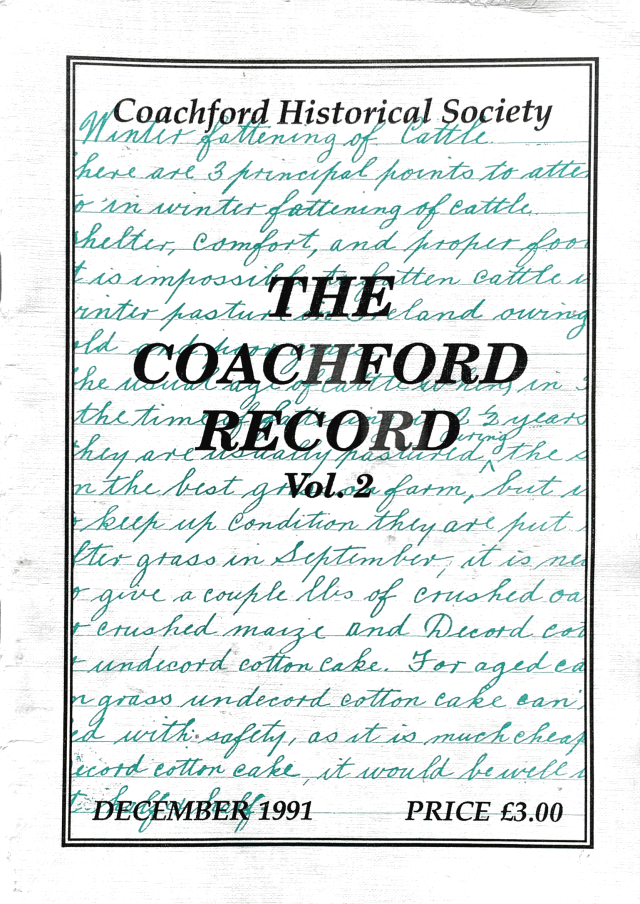 Coachford Historical Society
Winter fattening of Cattle.
here are 3 principal points to atte
o in winter fattening of cattle.
shelter, comfort, and proper foo
t is impossible to fatten cattle
THE
inter pasture in Ireland owing
old and
COACHFORD
he usual age of cattle in
the time 2 ½ years
RECORD
they are usually pastured, during the s
Vol. 2
n the best grass on farm, but
keep up condition they are put
fter grass in September, it is ne
o give a couple lbs of crushed oa
r crushed maize and Decord cot
r undecord cotton cake. For aged ca
n grass undecord cotton cake can
ed with safety, as it is much cheap
ecord cotton cake, it would be well
half & half
DECEMBER 1991 PRICE £3.00